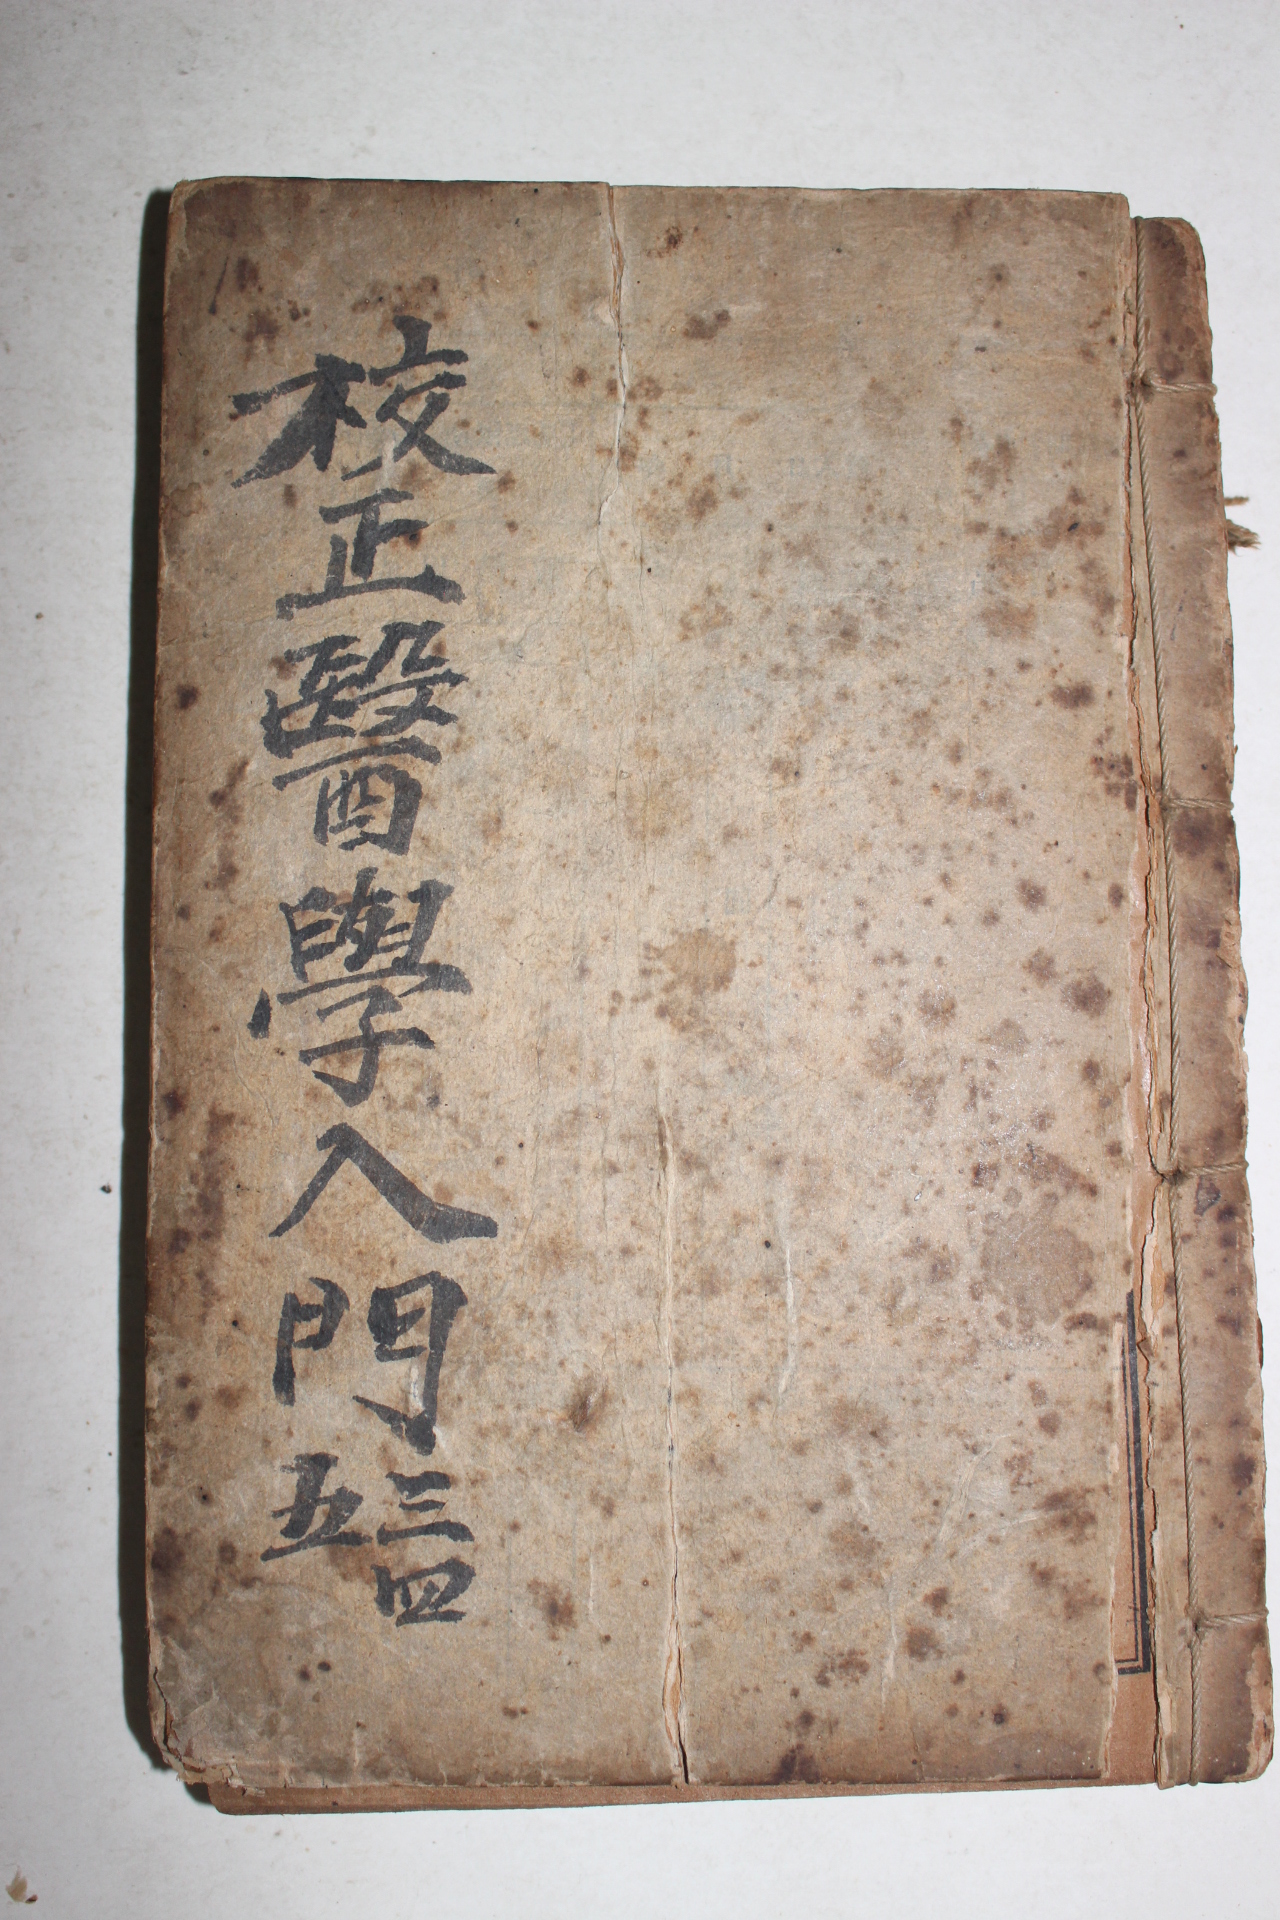 校正醫學入門
三四
五